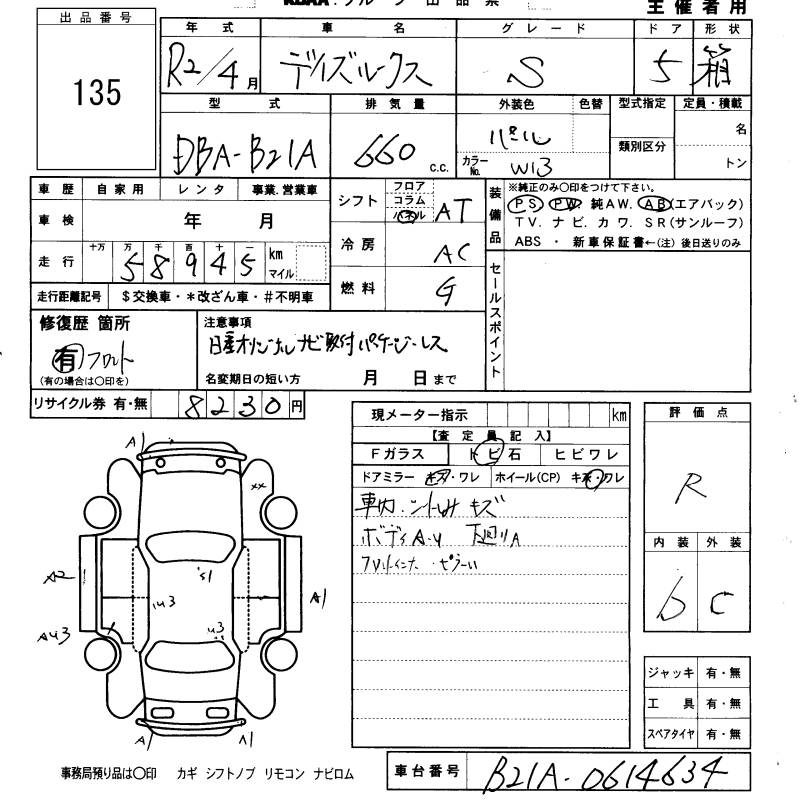 主催者用
出品番号
135
年式 車名 グレード ドア 形状
R2/4月 デイズルークス S 5 箱
型式 排気量 外装色 色替 型式指定 定員・積載
DBA-B21A 660 c.c. パール 類別区分 名
カラーNo. W13 トン
車歴 自家用 レンタ 事業.営業車
車検 年 月
走行 十万 万 千 百 十 一
58945 km マイル
走行距離記号 $交換車・*改ざん車・#不明車
シフト フロア コラム パネル AT
冷房 AC
燃料 G
装備品 ※純正のみ〇印をつけて下さい。
PS PW 純AW. AB(エアバック)
TV. ナビ. カワ. SR(サンルーフ)
ABS ・ 新車保証書←(注) 後日送りのみ
セールスポイント
修復歴 箇所
有 フロント
(有の場合は〇印を)
注意事項
日産オリジナルナビ取付パッケージレス
名変期日の短い方 月 日まで
リサイクル券 有・無 8230円
現メーター指示 km
【査定員記入】
Fガラス トビ石 ヒビワレ
ドアミラー キズ・ワレ ホイール(CP) キズ・ワレ
車内・シートLM キズ
ボディA.U 下廻りA
評価点
R
内装 外装
b C
A1
××
A2
S1
U3
U3
A1
AU3
A1
A1
ジャッキ 有・無
工具 有・無
スペアタイヤ 有・無
事務局預り品は〇印 カギ シフトノブ リモコン ナビロム
車台番号 B21A-0614634